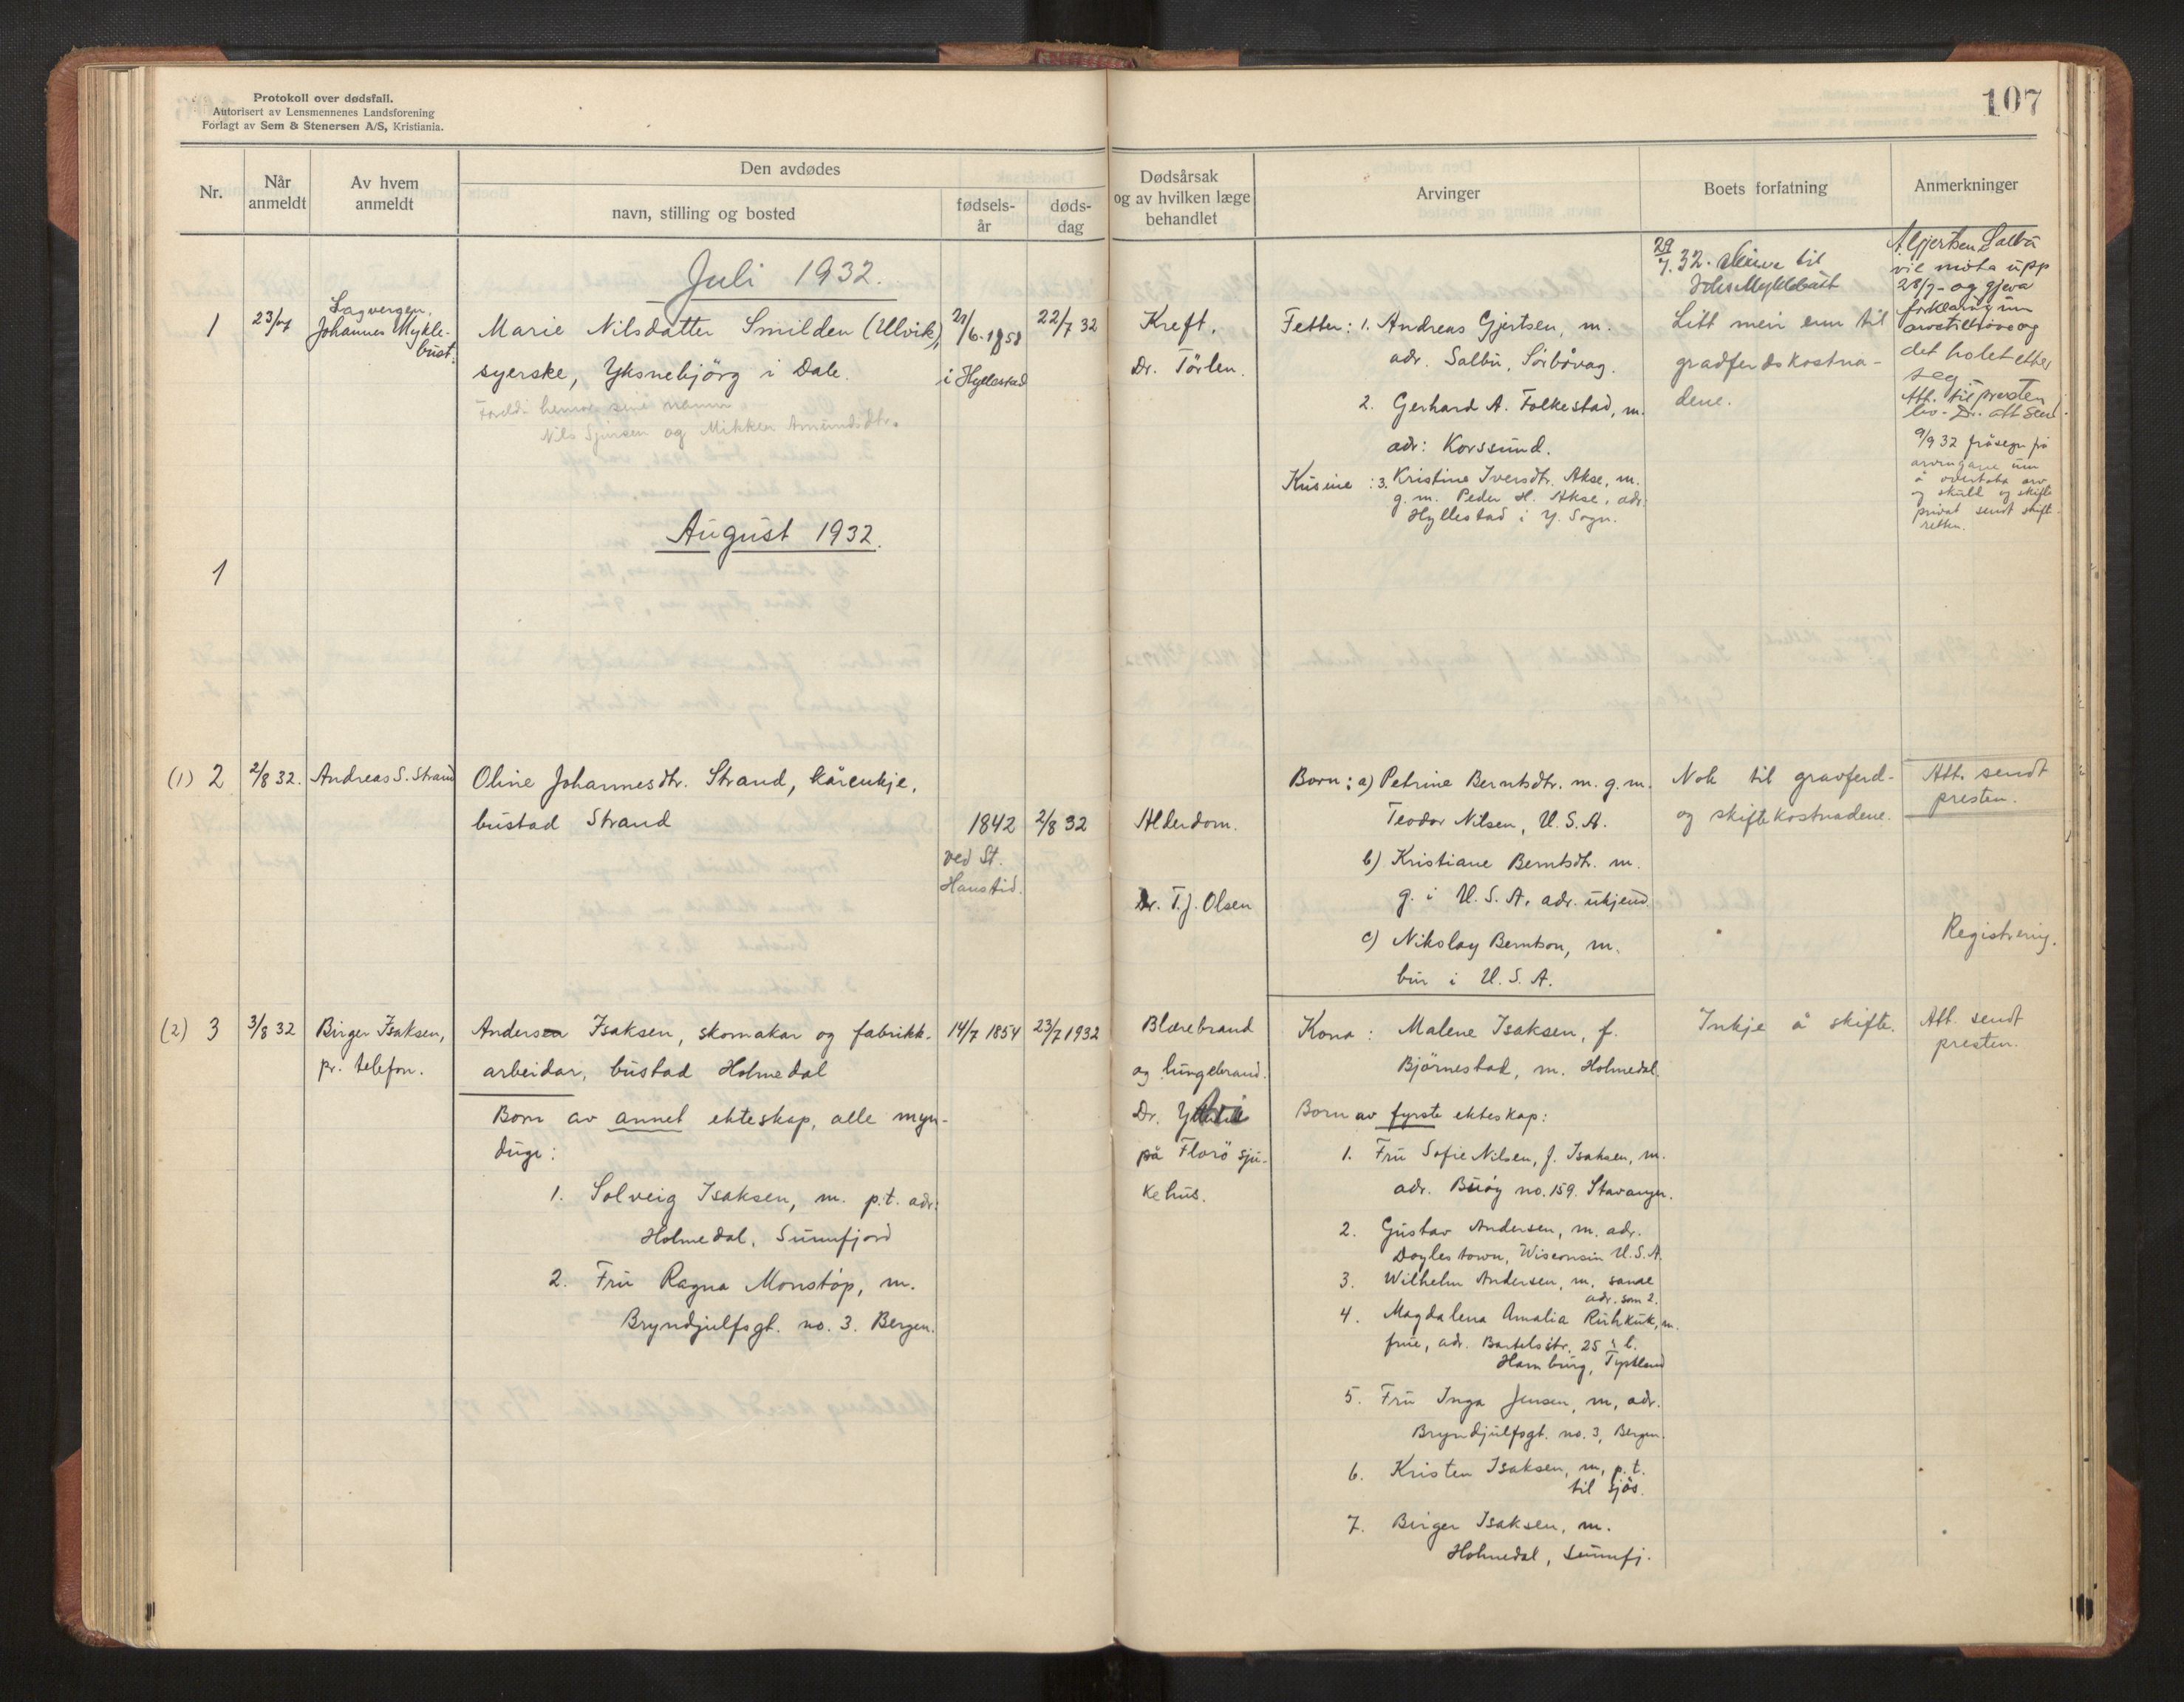 Protokoll over dødsfall.
Autorisert av Lensmennenes Landsforening
Forlagt av Sem & Stenersen A/S, Kristiania.
107
Nr.
Når
anmeldt
Av hvem
anmeldt
Den avdødes
navn, stilling og bosted
fødsels-
år
døds-
dag
Dødsårsak
og av hvilken læge
behandlet
Arvinger
Boets forfatning
Anmerkninger
Juli 1932.
1
23/7
Lagvergen,
Johannes Mykle-
bust.
Marie Nilsdatter Smilden (Ulvik),
syerske, Yksnebjörg i Dale.
Foreldr. hennar
Nils Sjursen og Mikkla Amundsdtr.
21/6.1858
i Hyllestad
22/7 32
Kreft.
Dr. Törlen.
Fetter: 1. Andreas Gjertsen, m.
adr. Salbu, Sörbövag.
2. Gerhard A. Folkestad, m.
adr: Korssund.
Kusine : 3. Kristine Iversdtr. Akse, m.
g. m. Peder H. Akse, adr:
Hyllestad i Y. Sogn.
29/7.32. skrive til
Litt meir enn til
gradferdskostna-
dene.
A. Gjertsen Salbu
vil möta upp
28/7 - og gjeva
forklaring um
og
det holet etter
seg.
Att. til presten
9/9 32 fråsegn frå
arvingane um
å overtaka arv
og skuld og skifte
privat sendt skift-
retten.
August 1932.
1
(1) 2
2/8 32.
Andreas S. Strand
Oline Johannesdtr. Strand, kårenkje,
bustad Strand
1842
ved St.
Hanstid.
2/8 32
Alderdom.
Dr. T. J. Olsen
Born: a) Petrine Berntsdtr. m. g. m.
Teodor Nilsen, U. S. A.
b) Kristiane Berntsdtr. m.
g. i U. S. A. adr. ukjend.
c) Nikolay Berntson, m.
bur i U. S. A.
Nok til gravferd-
og skiftekostnadene.
Att. sendt
presten.
Registrering.
(2) 3
3/8 32
Birger Isaksen,
pr. telefon.
Anders Isaksen, skomakar og fabrikk-
arbeidar, bustad Holmedal
Born av annet ekteskap, alle myn-
duge:
1. Solveig Isaksen, m. p.t. adr:
Holmedal, Sunnfjord
2. Fru Ragna Monstöp, m.
Bryndjulfsgt. no. 3. Bergen.
14/7 1854
23/7 1932
Blærebrand
og lungebrand.
Dr.
på Florö sju-
kehus.
Kona : Malene Isaksen, f.
Björnestad, m. Holmedal.
Born av fyrste ekteskap:
1. Fru Sofie Nilsen, f. Isaksen, m.
adr. Buöy no. 159. Stavanger.
2. Gustav Andersen, m. adr.
Doylestown, Wisconsin U.S.A.
3. Wilhelm Andersen, m, same
adr. som 2.
4. Magdalena Amalia Rühkuk, m.
frue, adr. Bartelsstr. 25
Hamburg, Tyskland
5. Fru Inga Jensen, m, adr.
Bryndjulfsgt. no. 3, Bergen.
6. Kristen Isaksen, m, p. t.
til sjös.
7. Birger Isaksen, m.
Holmedal, Sunnfj.
Inkje å skifte.
Att. sendt
presten.